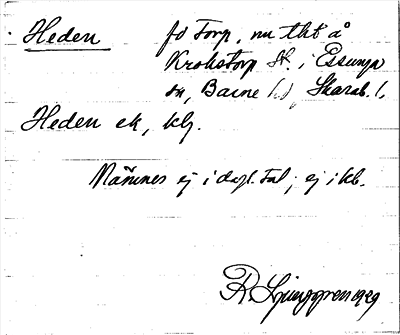 Heden fd Torp, nu tht å
Krokstorp St. i Essunga
sn, Barne hd, Skarab. l.
Heden ek, klj.
Nämnes ej i dagl. tal; ej i kb.
R Ljunggren 1929